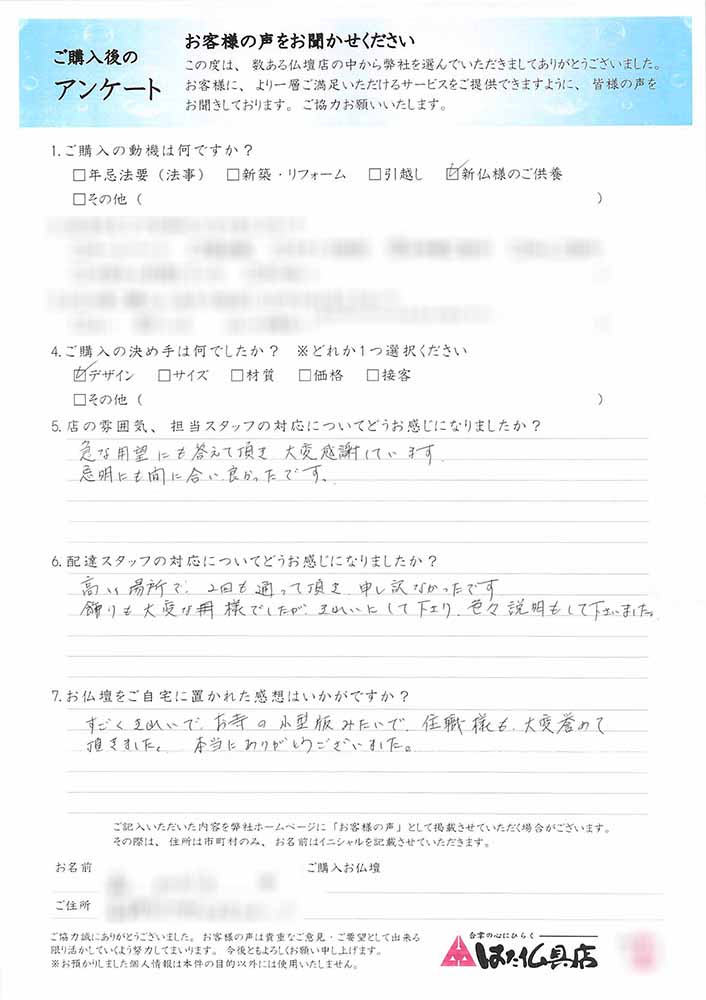 ご購入後の
アンケート
お客様の声をお聞かせください
この度は、数ある仏壇店の中から弊社を選んでいただきましてありがとうございました。
お客様に、より一層ご満足いただけるサービスをご提供できますように、皆様の声を
お聞きしております。ご協力お願いいたします。
1.ご購入の動機は何ですか？
□年忌法要（法事） □新築・リフォーム □引越し ☑新仏様のご供養
□その他（ ）
4.ご購入の決め手は何でしたか？ ※どれか1つ選択ください
☑デザイン □サイズ □材質 □価格 □接客
□その他（ ）
5.店の雰囲気、担当スタッフの対応についてどうお感じになりましたか？
急な用望にも答えて頂き 大変感謝しています
忌明にも間に合い良かったです。
6.配達スタッフの対応についてどうお感じになりましたか？
高い場所で、2回も通って頂き 申し訳なかったです
飾りも大変な用様でしたが、きれいにして下さり、色々説明もして下さいました。
7.お仏壇をご自宅に置かれた感想はいかがですか？
すごくきれいで、お寺の小型版みたいで、住職様も、大変誉めて
頂きました。 本当にありがとうございました。
ご記入いただいた内容を弊社ホームページに「お客様の声」として掲載させていただく場合がございます。
その際は、住所は市町村のみ、お名前はイニシャルを記載させていただきます。
お名前 ご購入お仏壇
ご住所
ご協力誠にありがとうございました。お客様の声は貴重なご意見・ご要望として出来る
限り活かしていくよう努力してまいります。今後ともよろしくお願い申し上げます。
※お預かりしました個人情報は本件の目的以外には使用いたしません。
合掌の心にひらく
はた仏具店